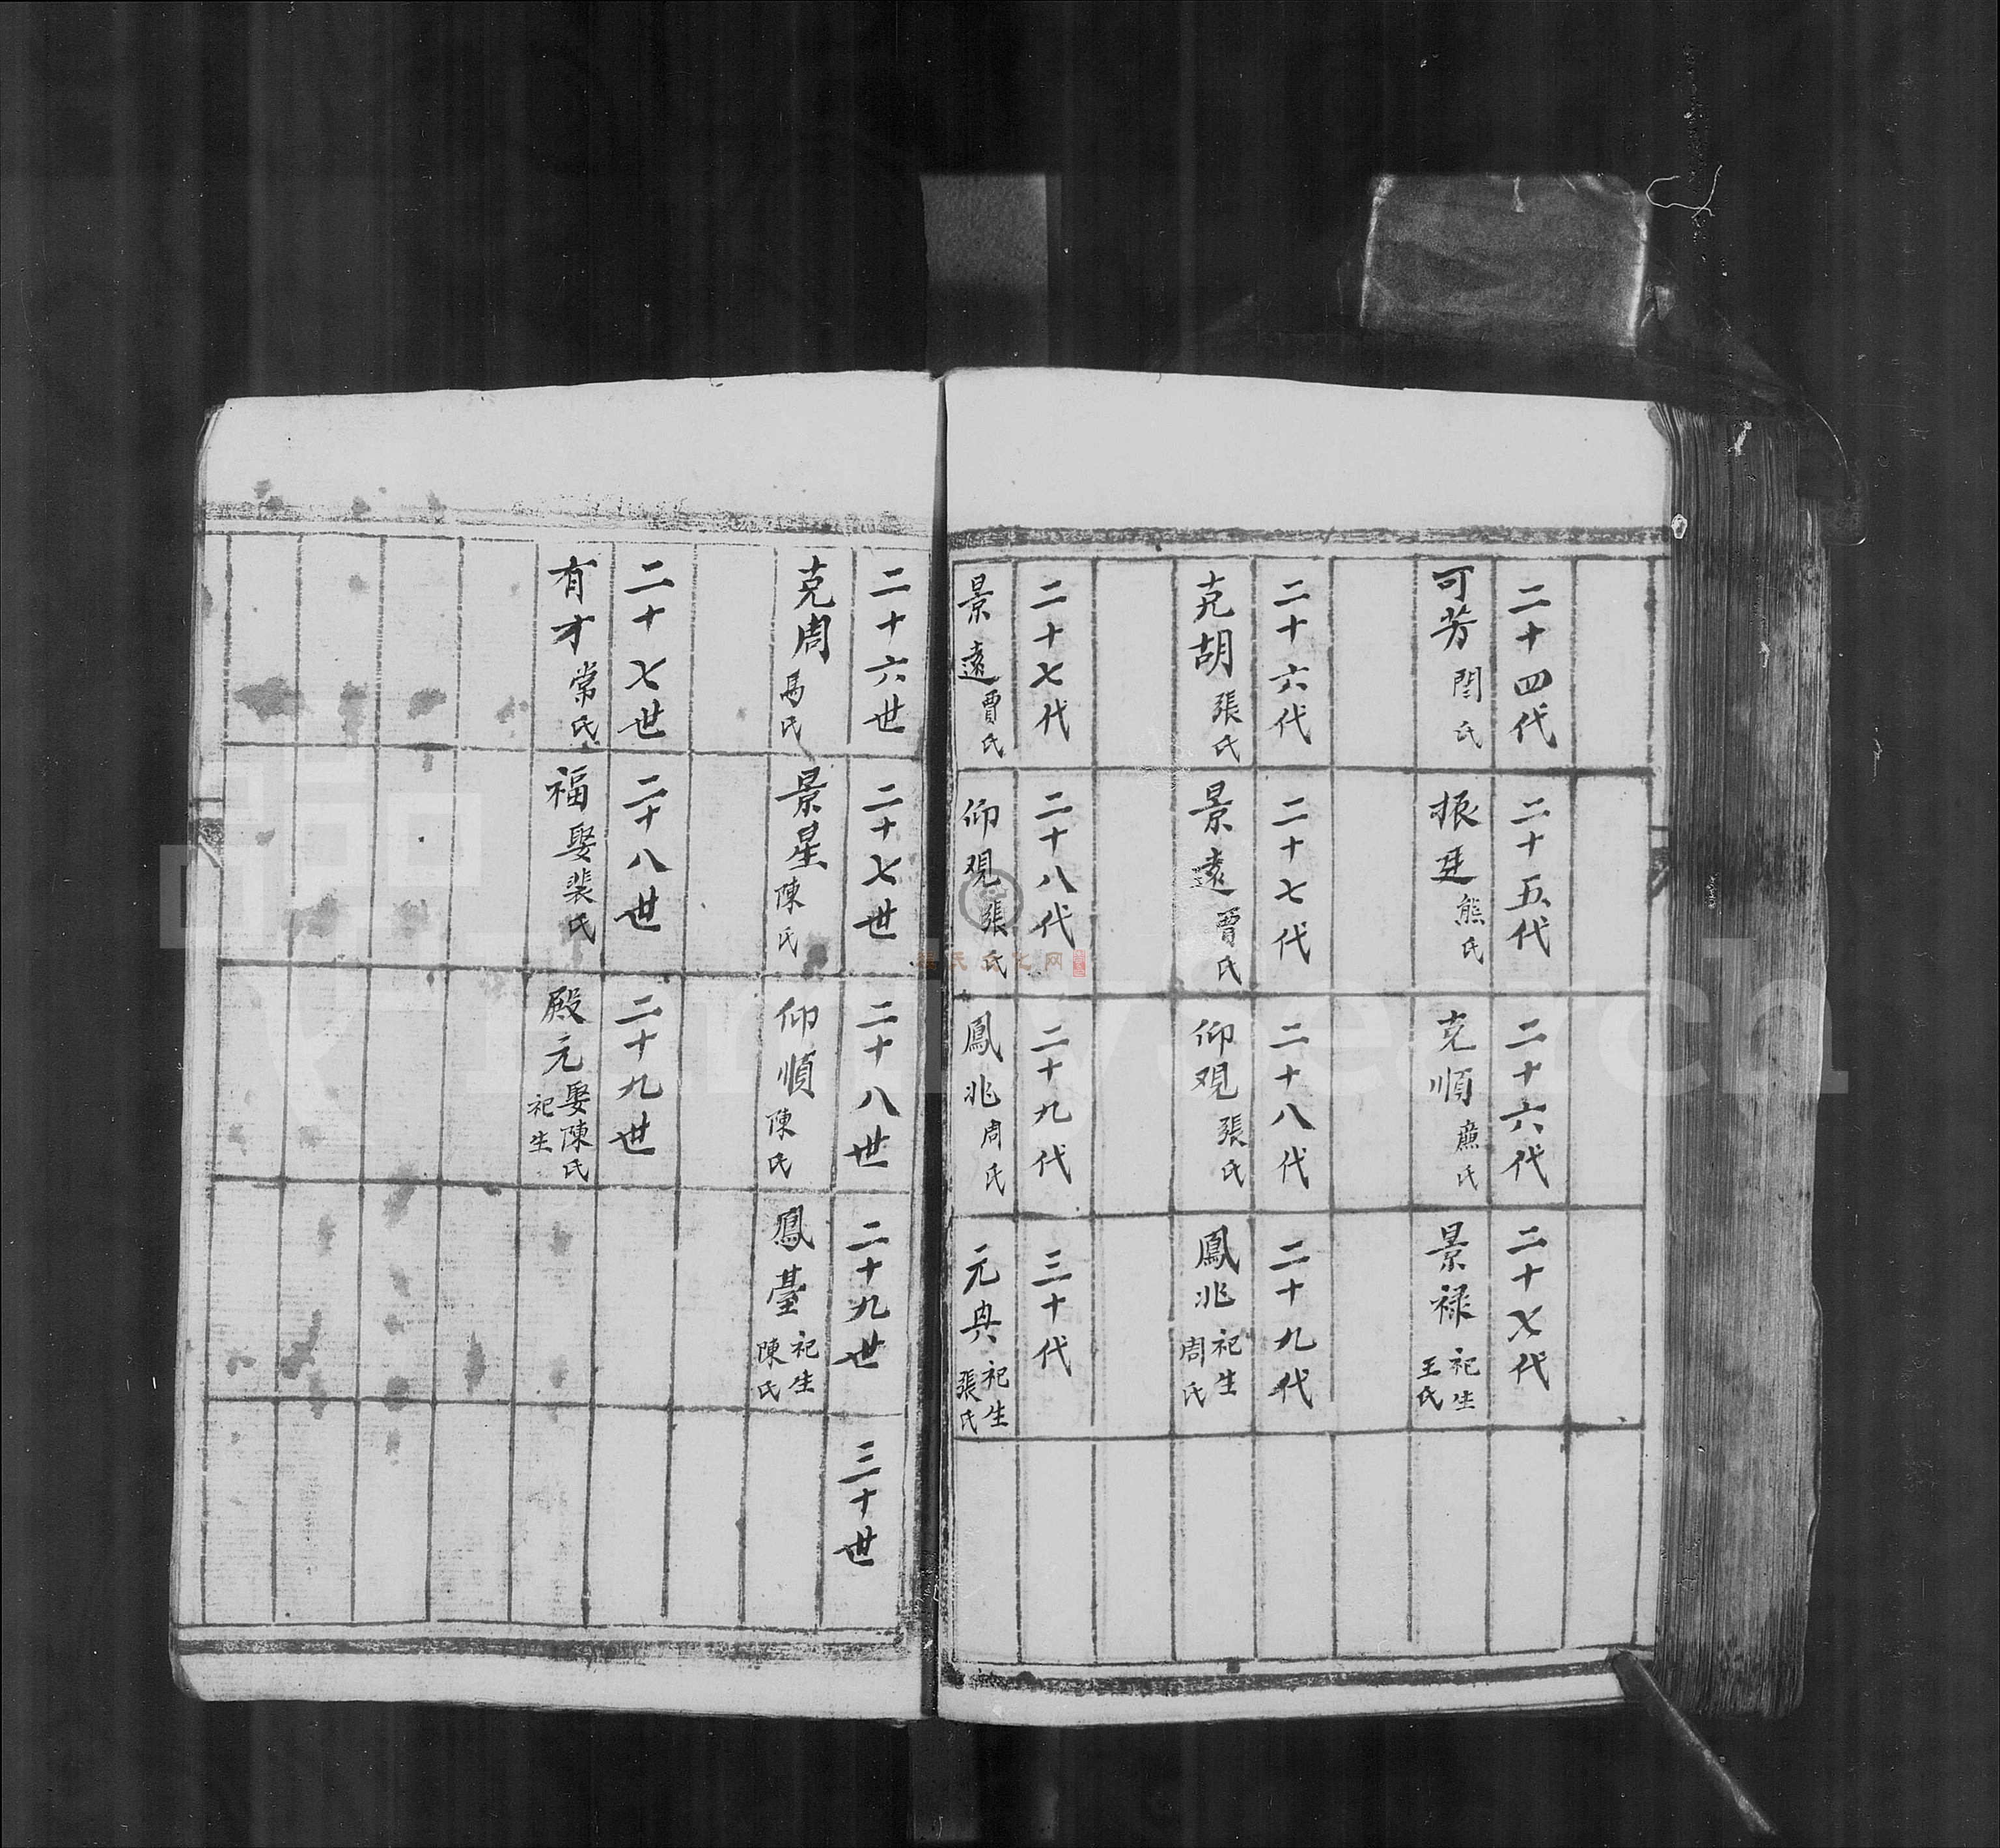 二十四代
二十五代
二十六代
二十七代
可芳 閆氏
振廷 熊氏
克順 氏
景禄 祀生 王氏
二十六代
二十七代
二十八代
二十九代
克胡 張氏
景遠 賈氏
仰观 張氏
鳳兆 祀生 周氏
二十七代
二十八代
二十九代
三十代
景遠 賈氏
仰观 張氏
鳳兆 周氏
元典 祀生 張氏
二十六世
二十七世
二十八世
二十九世
三十世
克周 馬氏
景星 陳氏
仰順 陳氏
鳳臺 祀生 陳氏
二十七世
二十八世
二十九世
有才 常氏
福 娶裴氏
殿元 娶陳氏 祀生
FamilySearch